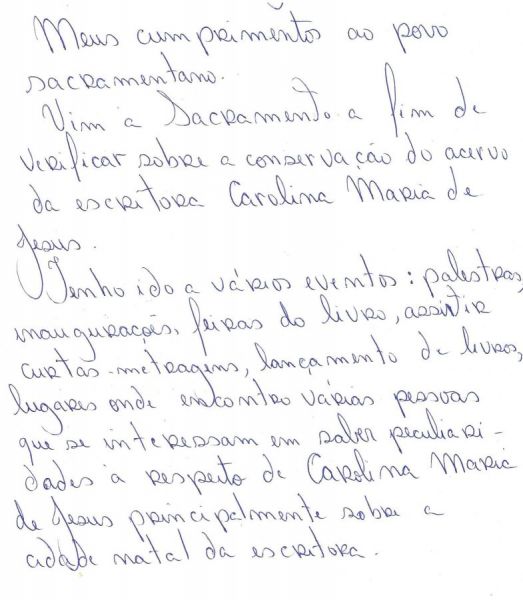 Meus cumprimentos ao povo
sacramentano.
Vim à Sacramento a fim de
verificar sobre a conservação do acervo
da escritora Carolina Maria de
Jesus.
Tenho ido a vários eventos: palestras,
inaugurações, feiras do livro, assistir
curtas-metragens, lançamento de livros,
lugares onde encontro várias pessoas
que se interessam em saber peculiari-
dades à respeito de Carolina Maria
de Jesus principalmente sobre a
cidade natal da escritora.